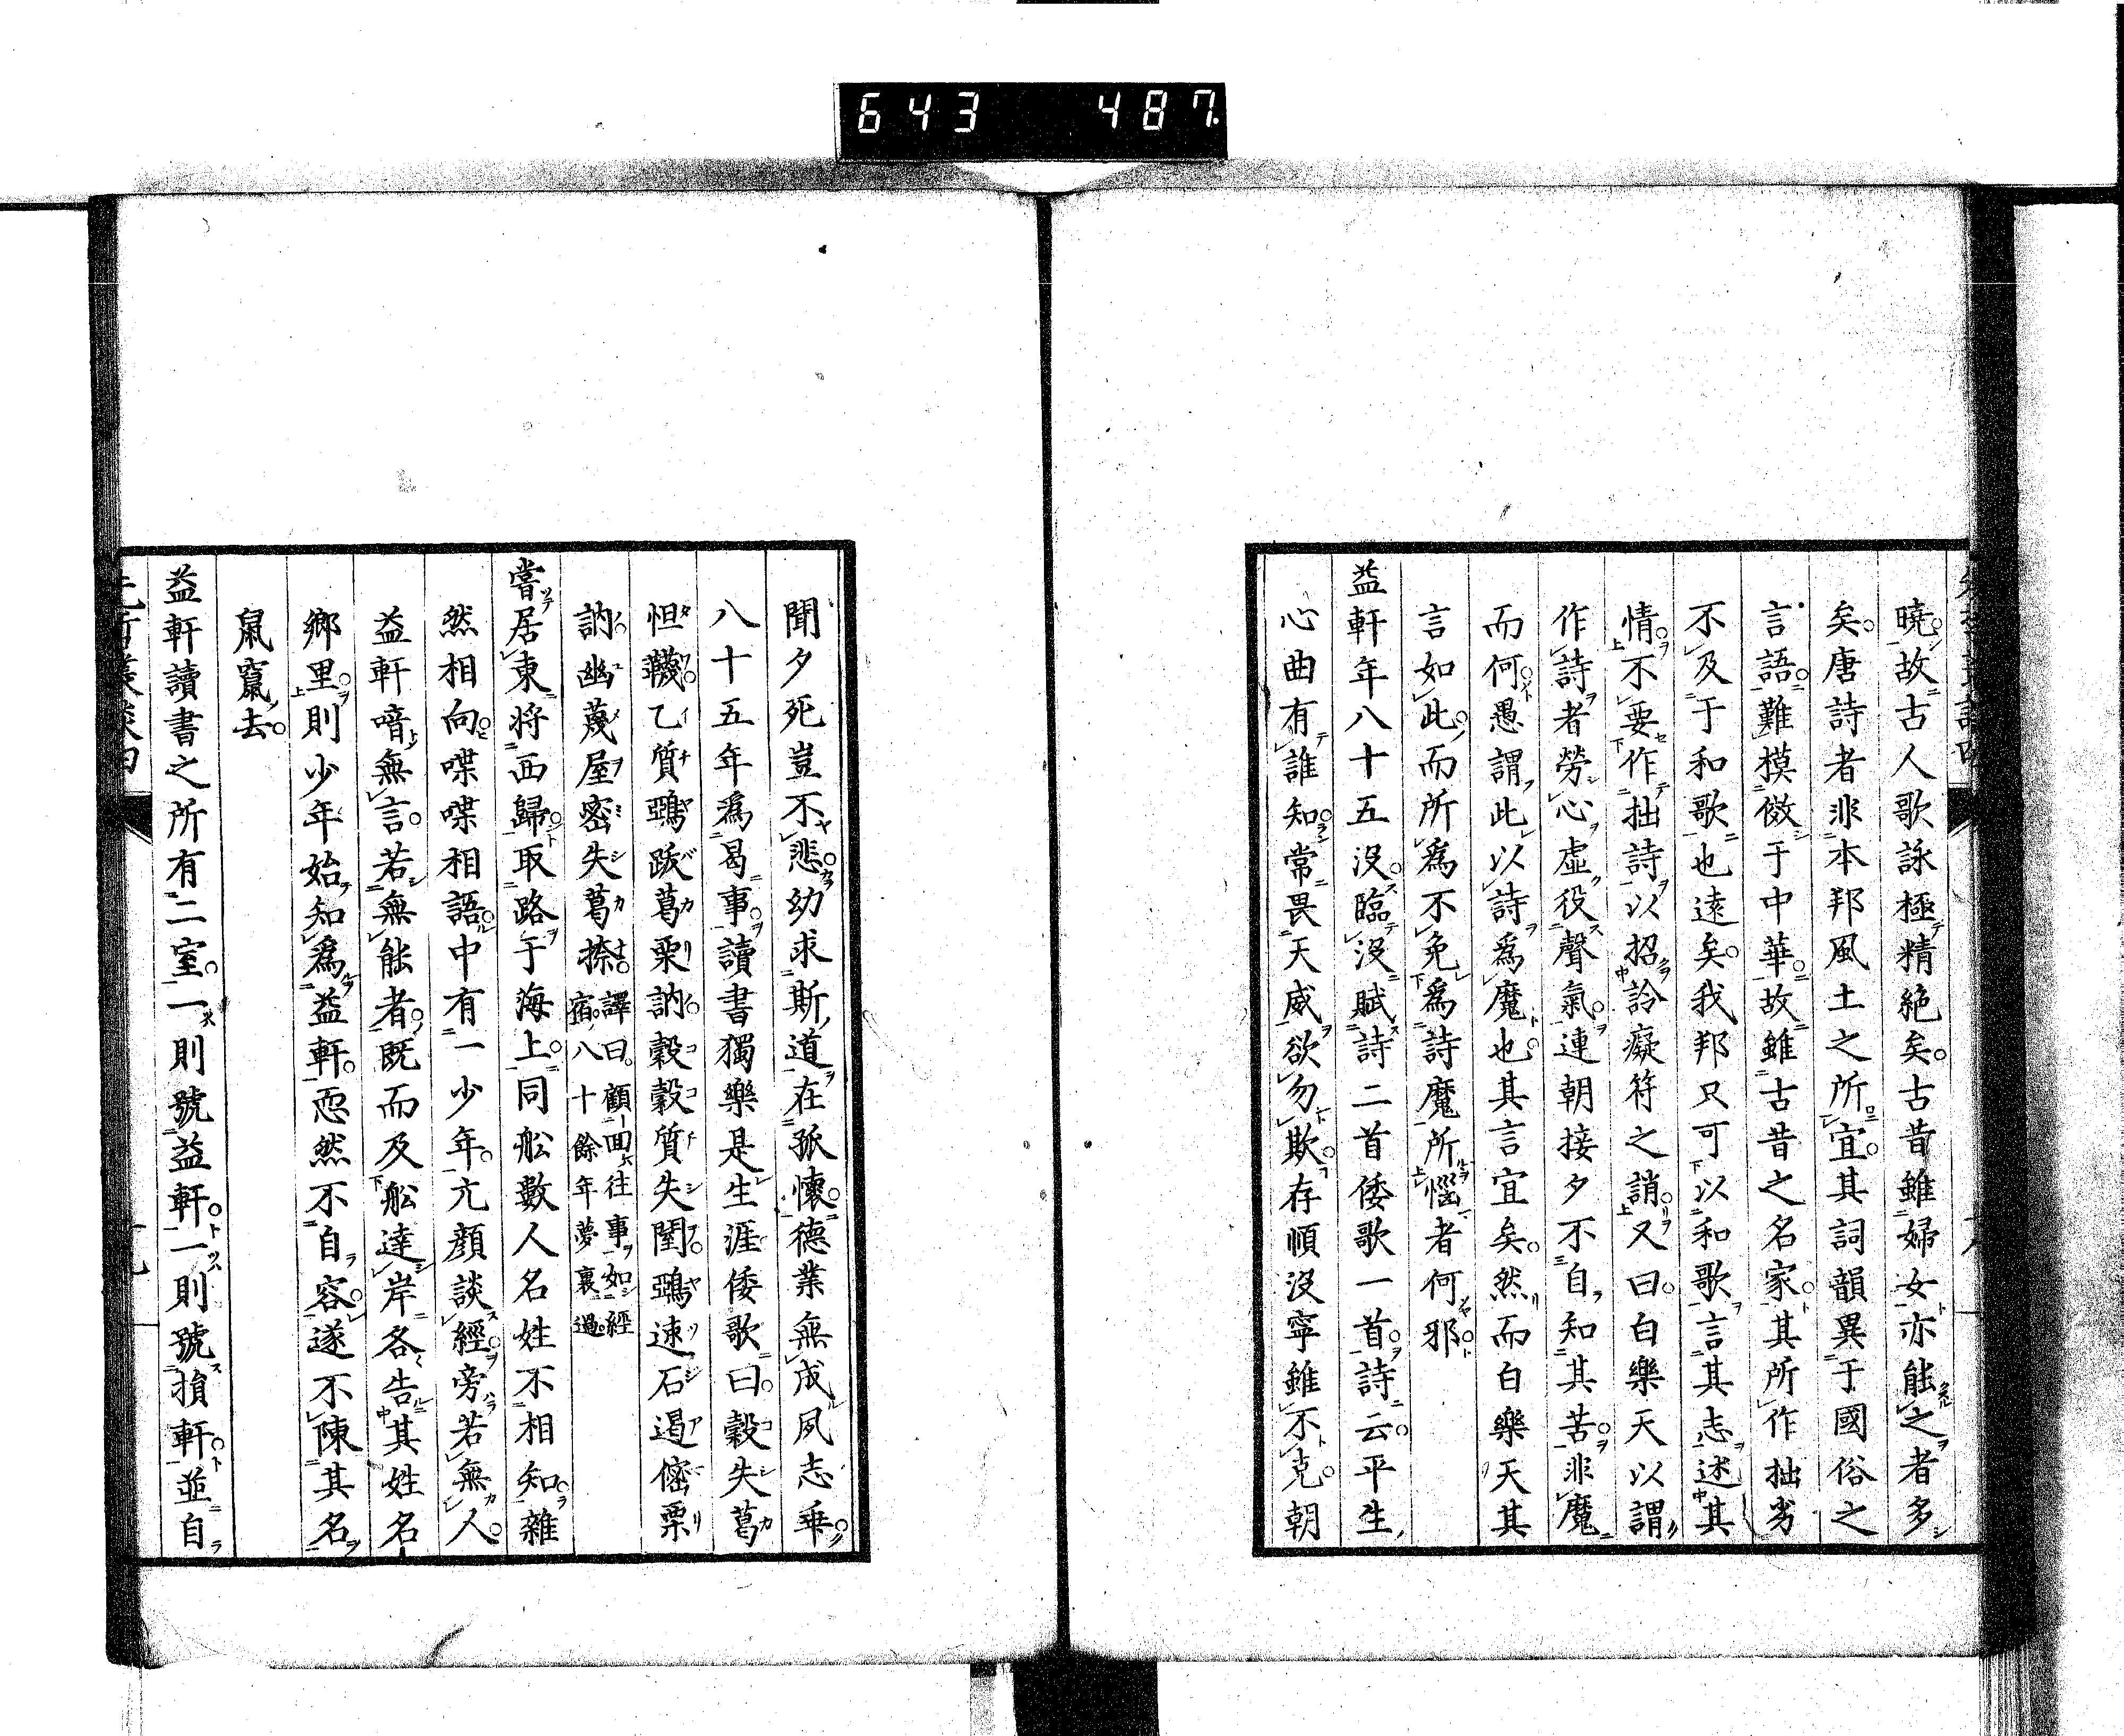 643 487.
曉故古人歌詠極精絕矣古昔雖婦女亦能之者多
矣唐詩者非本邦風土之所宜其詞韻異于國俗之
言語難模倣于中華故雖古昔之名家其所作拙劣
不及于和歌也遠矣我邦只可以和歌言其志述其
情不要作拙詩以招詅癡符之誚又曰白樂天以謂
作詩者勞心虛役聲氣連朝接夕不自知其苦非魔
而何愚謂此以詩爲魔也其言宜矣然而白樂天其
言如此而所爲不免爲詩魔所惱者何邪
益軒年八十五沒臨沒賦詩二首倭歌一首詩云平生
心曲有誰知常畏天威欲勿欺存順沒寧雖不克朝
聞夕死豈不悲幼求斯道在孤懷德業無成夙志乖
八十五年爲曷事讀書獨樂是生涯倭歌曰穀失葛
怛韈乙質鵶跋葛栗訥穀穀質失闍鵶速石遏僿栗
訥幽蔑屋密失葛捺譯曰顧回往事如經宿八十餘年夢裏過
嘗居東將西歸取路于海上同舩數人名姓不相知雜
然相向喋喋相語中有一少年亢顏談經旁若無人
益軒喑無言若無能者既而及舩達岸各告其姓名
鄉里則少年始知爲益軒恧然不自容遂不陳其名
鼠竄去
益軒讀書之所有二室一則號益軒一則號損軒並自